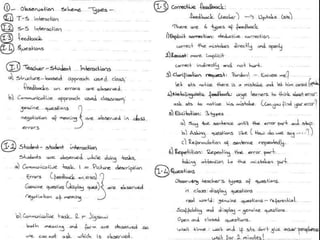 ① — Observation Scheme Types —
I.1 T-S interaction
I.2 S-S interaction
I.3 feedback
I.4 Questions
I.1 Teacher-Student Interactions
a) Structure-based approach used class
feedbacks on errors are observed.
b) Communicative approach used classroom
genuine questions
negotiation of meaning are observed in class.
errors
I.2 Student-Student interaction
Students are observed while doing tasks.
a) Communicative task 1 → Picture description
Errors (feedback on errors)
Genuine question (display ques) are observed
negotiation of meaning
b) Communicative task 2 → Jigsaw
both meaning and form are observed so
we can not ask which is observed.
I.3 Corrective feedback:
feedback (teacher) → Uptake (sts)
There are 6 types of feedback
1) Explicit correction: deductive correction
correct the mistakes directly and openly
2) Recast: more implicit
correct indirectly and not hurt.
3) Clarification request: Pardon! - Excuse me!
let sts notice there is a mistake and let him correct
4) Metalinguistic feedback: urge learners to think about error
ask sts to notice his mistake (Can you find your error?)
5) Elicitation: 3 types
a) Say the sentence until the error part and stop
b) Asking questions like (How do we say .....?)
c) Reformulation of sentence repeatedly.
6) Repetition: Repeating the error part.
taking attention to the mistaken part
I-4 Questions
Observing teacher's types of questions
in class: display questions
real world: genuine questions - referential.
Scaffolding and display - genuine questions.
Open and closed questions.
wait time: wait and if sts don't give answer
wait for 2 minutes!